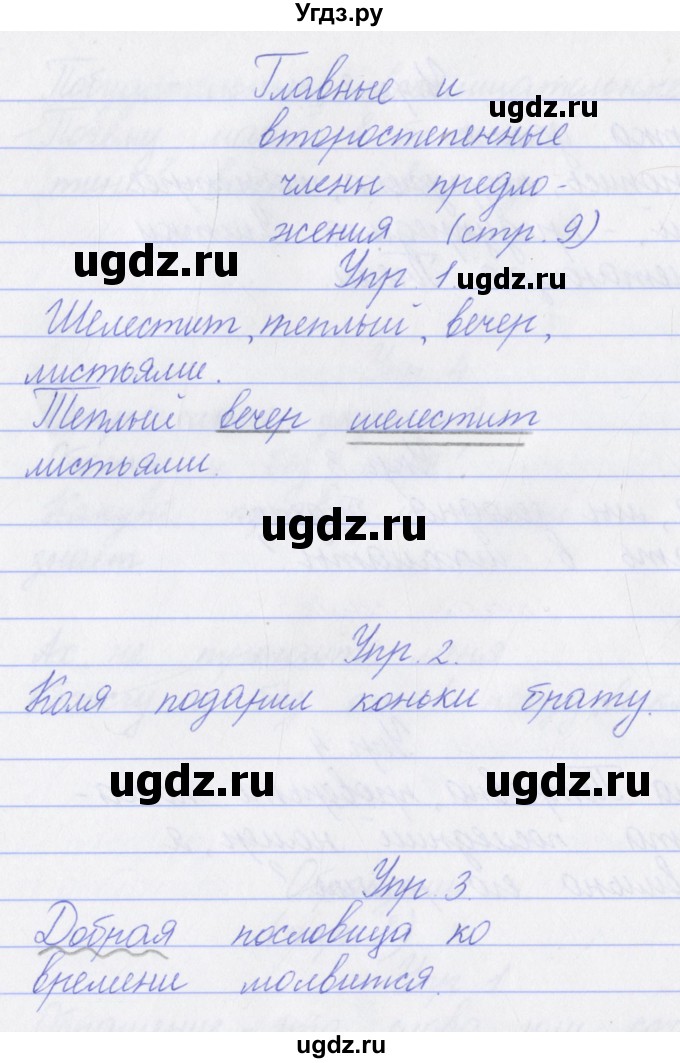 Угдз.ру
Главные и
ugdz.ru
второстепенные
члены предло-
жения (стр. 9)
ugdz.ru
Упр 1.
ugdz.ru
Шелестит, теплый, вечер,
листьями.
Теплый вечер шелестит
листьями.
ugdz.ru
Упр. 2.
Коля подарил коньки брату.
ugdz.ru ugdz.ru
Упр. 3.
Добрая пословица ко
времени молвится.
ugdz.ru